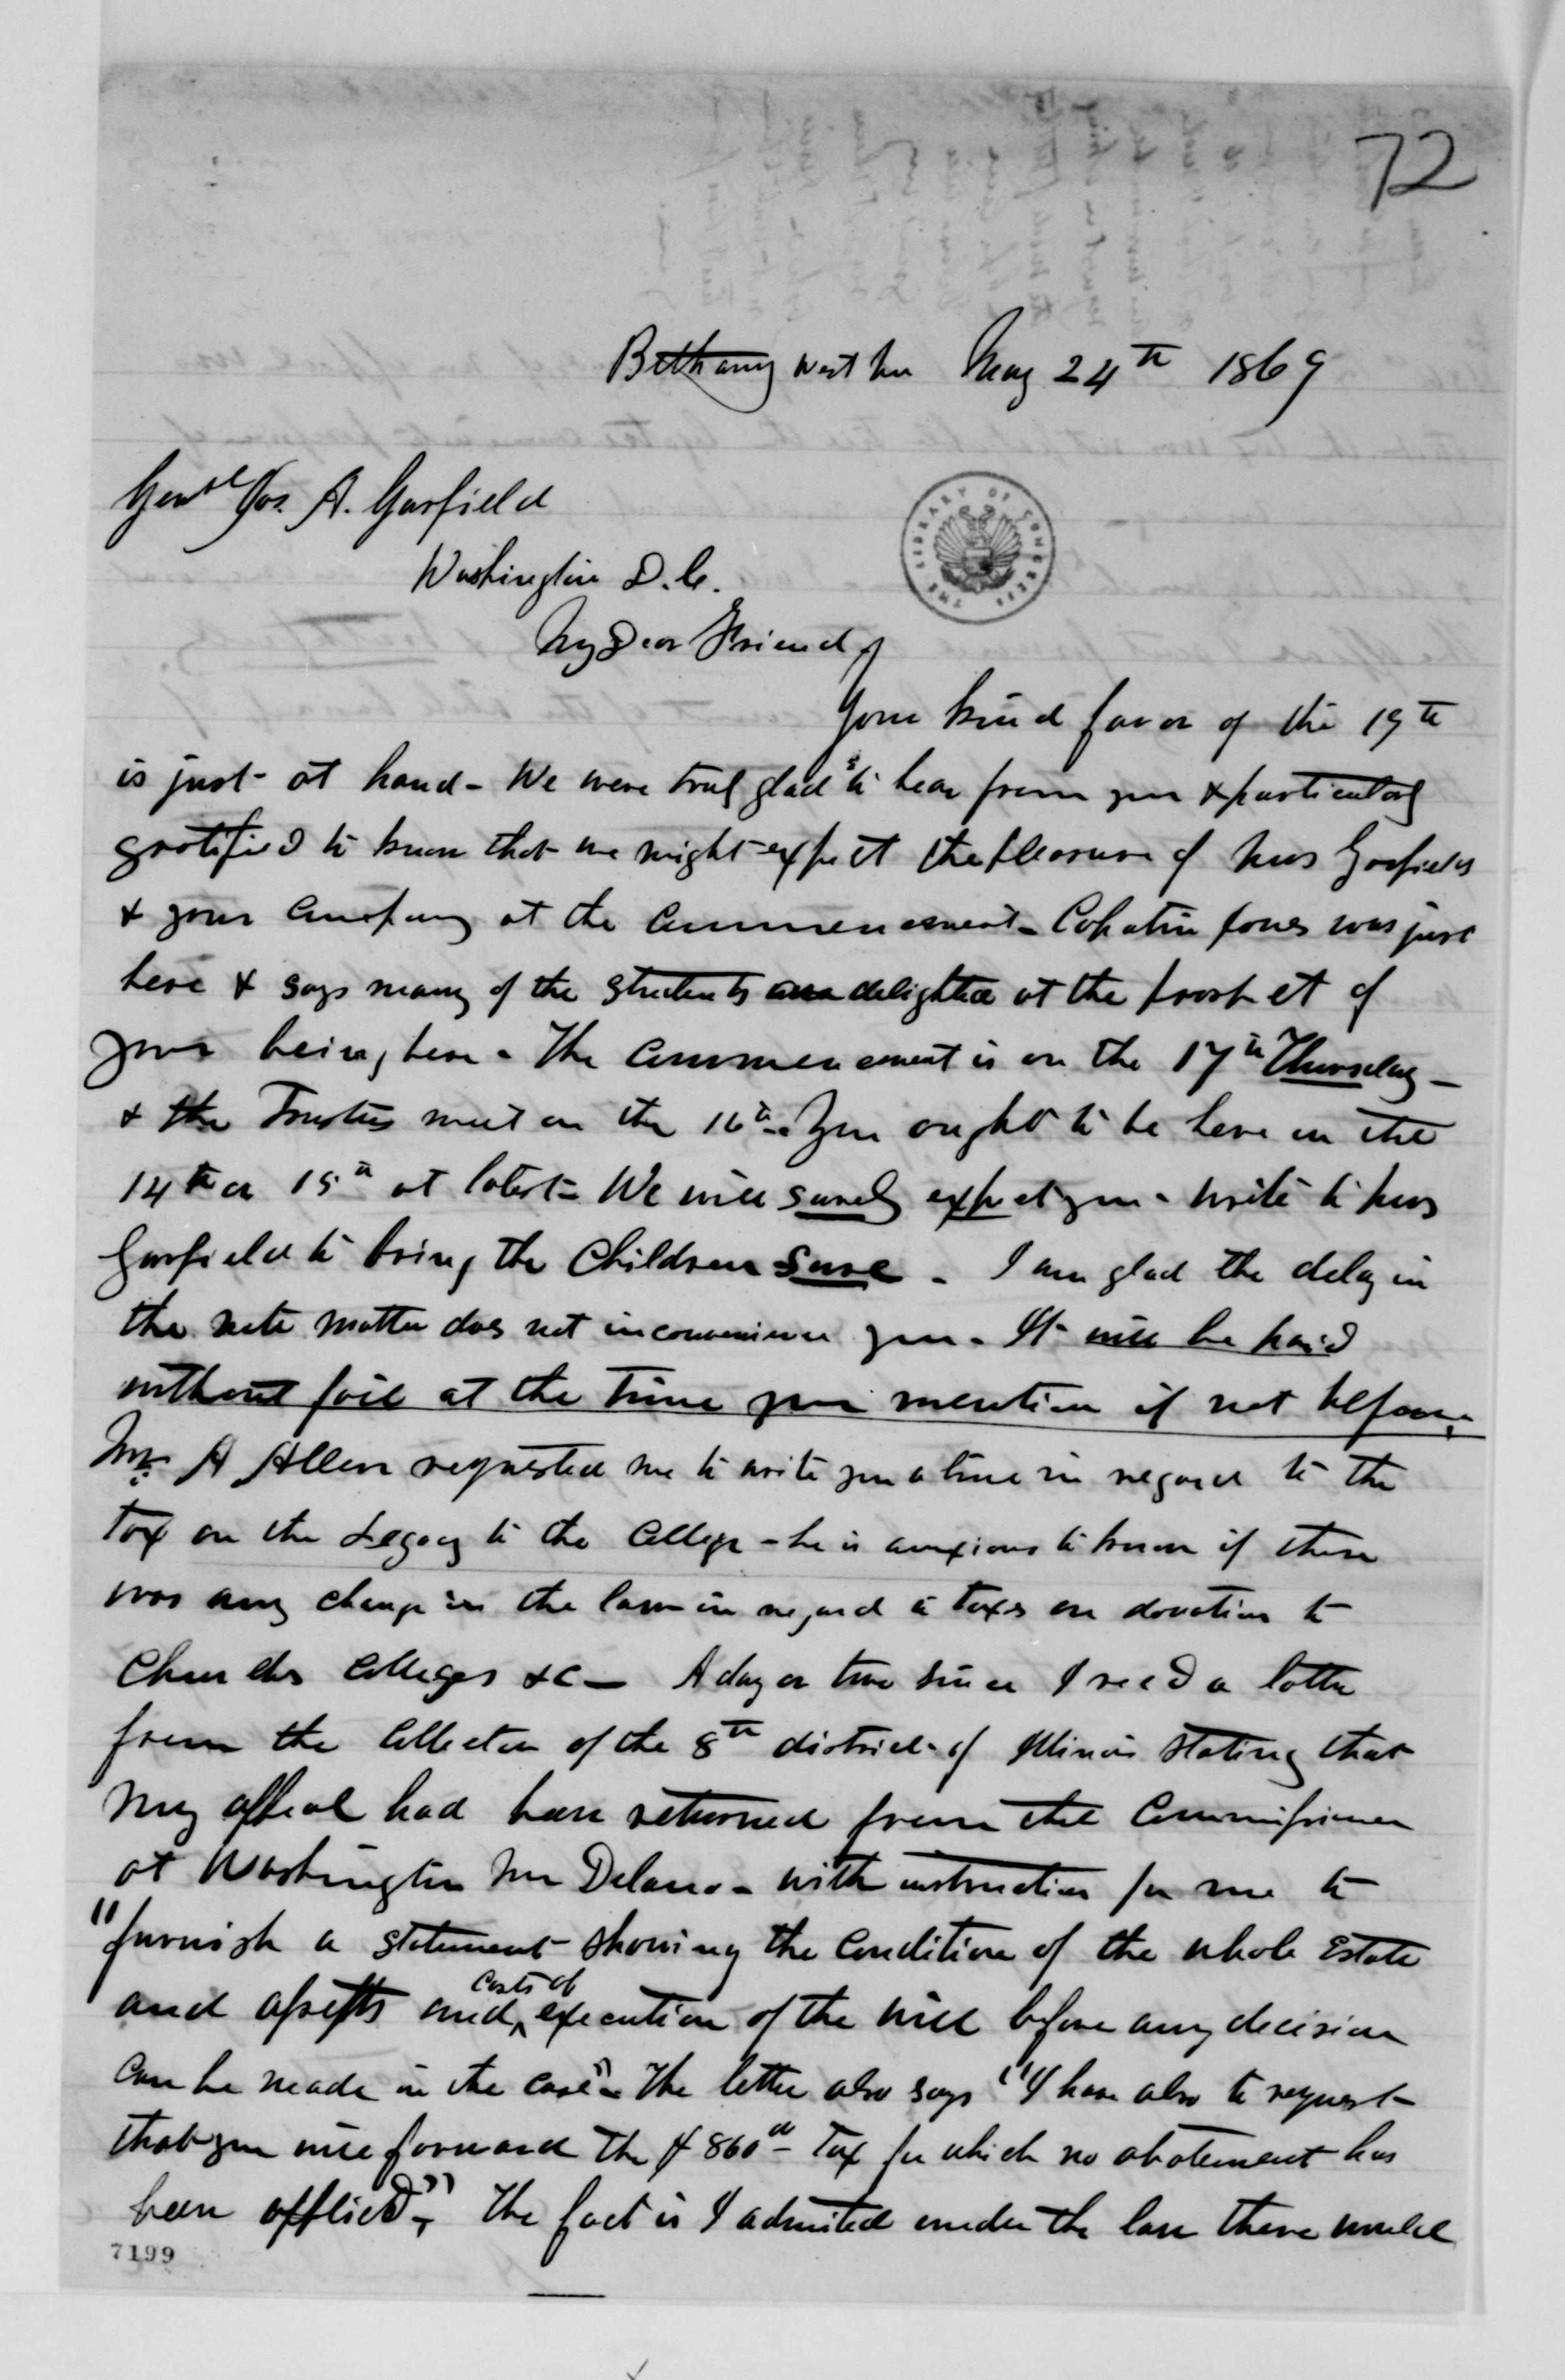 72
Bethany West Va May 24th 1869
Genl Jas. A. Garfield
Washington D.C.
THE LIBRARY OF CONGRESS
My Dear Friend,
Your kind favor of the 19th
is just at hand - We were truly glad to hear from you & particularly
gratified to know that we might expect the pleasure of Mrs Garfields
& your Company at the Commencement - Captain Jones was just
here & says many of the Students are delighted at the prospect of
your being here - The Commencement is on the 17th Thursday -
& the Trustees meet on the 16th - You ought to be here on the
14th or 15th at latest - We will surely expect you - write to Mrs
Garfield to bring the Children sure - I am glad the delay in
the note matter does not inconvenience you - It will be paid
without fail at the time you mention if not before -
Mr A Allen requested me to write you a line in regard to the
Tax on the Legacy to the College - he is anxious to know if there
was any change in the law in regard to taxes on donation to
Churches Colleges &c - A day or two since I recd a letter
from the Collector of the 8th district of Illinois stating that
my appeal had been returned from the Commissioner
at Washington Mr Delano - with instruction for me to
"furnish a statement showing the Condition of the whole Estate
and assetts and costs of execution of the will before any decision
can be made in the case" - The letter also says "I have also to request
that you will forward the $860 Tax for which no abatement has
been applied". The fact is I admited under the law there would
7199